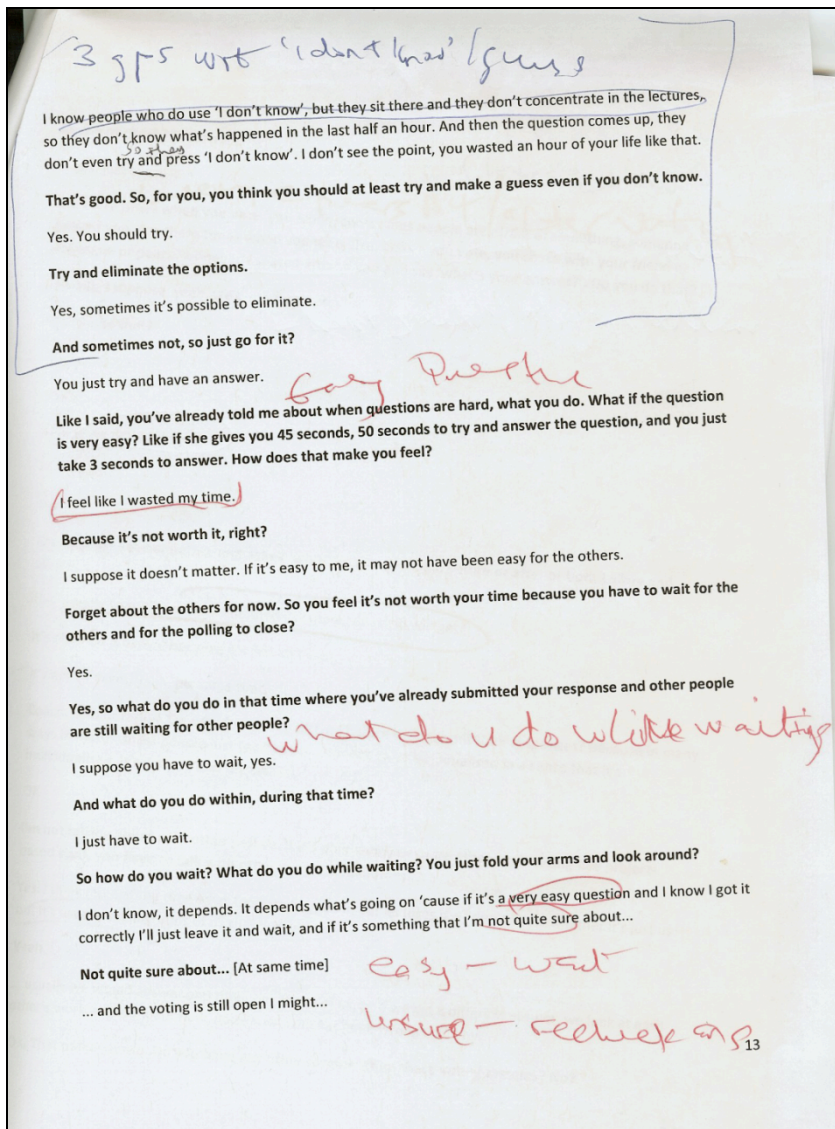 3 gps wrt 'I don't know' / guess
I know people who do use 'I don't know', but they sit there and they don't concentrate in the lectures,
so they don't know what's happened in the last half an hour. And then the question comes up, they
so they
don't even try and press 'I don't know'. I don't see the point, you wasted an hour of your life like that.
That's good. So, for you, you think you should at least try and make a guess even if you don't know.
Yes. You should try.
Try and eliminate the options.
Yes, sometimes it's possible to eliminate.
And sometimes not, so just go for it?
You just try and have an answer.
Easy Question
Like I said, you've already told me about when questions are hard, what you do. What if the question
is very easy? Like if she gives you 45 seconds, 50 seconds to try and answer the question, and you just
take 3 seconds to answer. How does that make you feel?
I feel like I wasted my time.
Because it's not worth it, right?
I suppose it doesn't matter. If it's easy to me, it may not have been easy for the others.
Forget about the others for now. So you feel it's not worth your time because you have to wait for the
others and for the polling to close?
Yes.
Yes, so what do you do in that time where you've already submitted your response and other people
are still waiting for other people?
What do u do while waiting
I suppose you have to wait, yes.
And what do you do within, during that time?
I just have to wait.
So how do you wait? What do you do while waiting? You just fold your arms and look around?
I don't know, it depends. It depends what's going on 'cause if it's a very easy question and I know I got it
correctly I'll just leave it and wait, and if it's something that I'm not quite sure about...
Not quite sure about... [At same time]
easy - wait
... and the voting is still open I might...
unsure - recheck ans
13